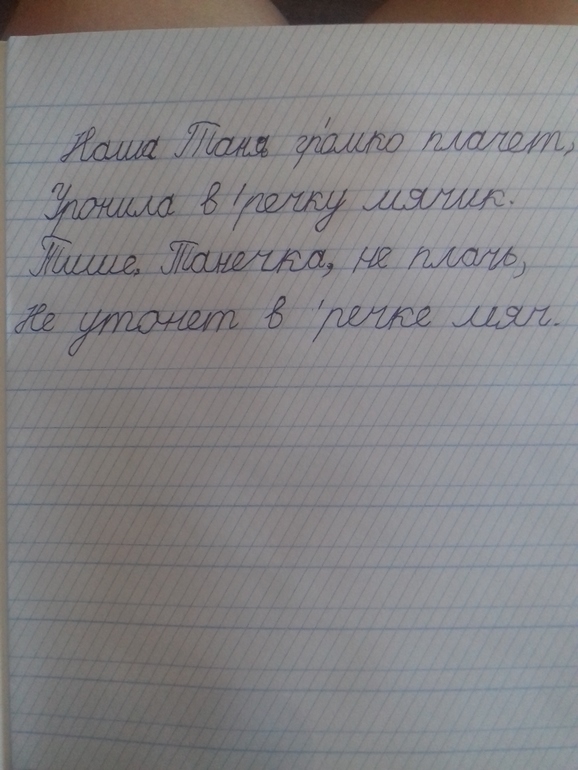 Наша Таня громко плачет,
Уронила в речку мячик.
Тише, Танечка, не плачь,
Не утонет в речке мяч.